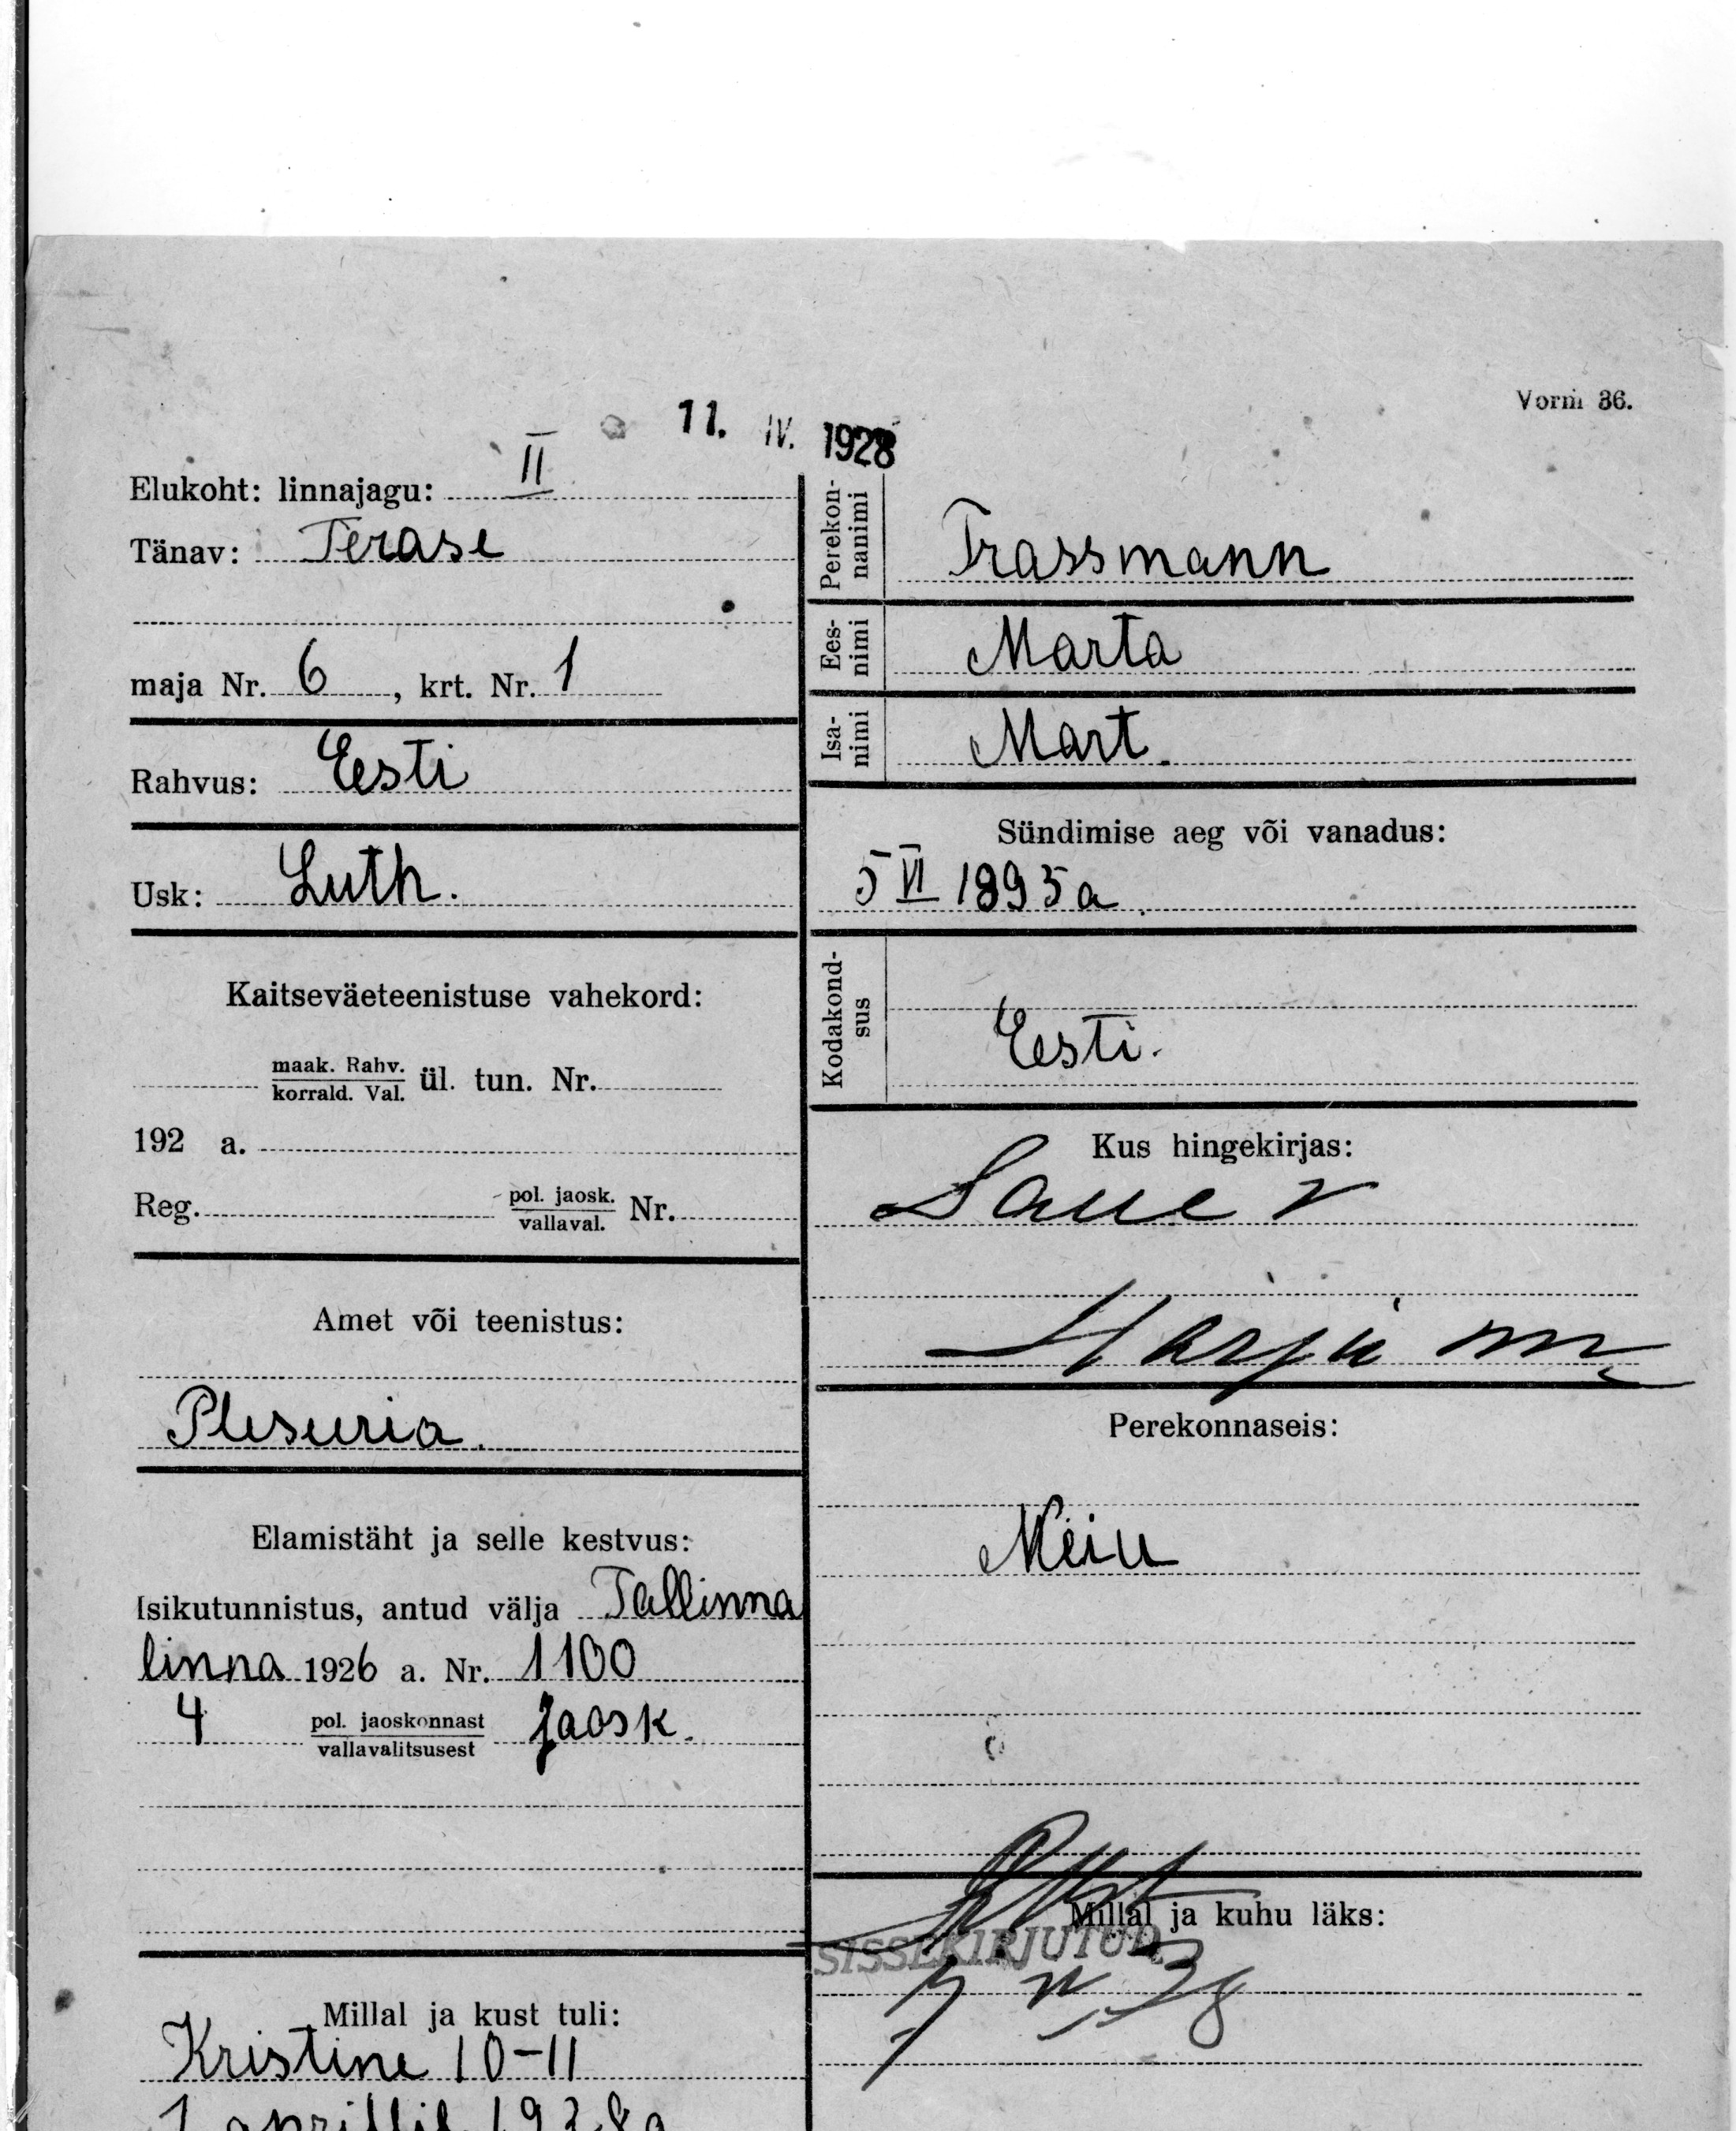 Vorm 36.
11. IV. 1928
Elukoht: linnajagu: II
Tänav: Terase
maja Nr. 6, krt. Nr. 1
Rahvus: Eesti
Usk: Luth.
Kaitseväeteenistuse vahekord:
maak. Rahv.
korrald. Val. ül. tun. Nr.
192 a.
Reg. pol. jaosk.
vallaval. Nr.
Amet või teenistus:
Plesuria.
Elamistäht ja selle kestvus:
Isikutunnistus, antud välja Tallinna
linna 1926 a. Nr. 1100
4 pol. jaoskonnast
vallavalitsusest Jaosk.
Millal ja kust tuli:
Kristine 10-11
1 aprillil 1928a
Perekon-
nanimi
Trassmann
Ees-
nimi
Marta
Isa-
nimi
Mart.
Sündimise aeg või vanadus:
5 VI 1895 a.
Kodakond-
sus
Eesti.
Kus hingekirjas:
Saue v
Harju m
Perekonnaseis:
Neiu
Millal ja kuhu läks:
SISSEKIRJUTUD